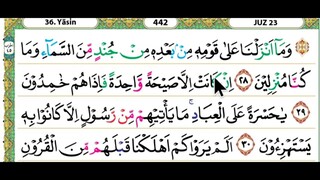 36. Yāsin 442 JUZ 23
وَمَآ اَنْزَلْنَا عَلٰى قَوْمِهٖ مِنْۢ بَعْدِهٖ مِنْ جُنْدٍ مِّنَ السَّمَاۤءِ وَمَا
كُنَّا مُنْزِلِيْنَ ٢٨ اِنْ كَانَتْ اِلَّا صَيْحَةً وَّاحِدَةً فَاِذَا هُمْ خٰمِدُوْنَ
٢٩ يٰحَسْرَةً عَلَى الْعِبَادِۚ مَا يَأْتِيْهِمْ مِّنْ رَّسُوْلٍ اِلَّا كَانُوْا بِهٖ
يَسْتَهْزِءُوْنَ ٣٠ اَلَمْ يَرَوْا كَمْ اَهْلَكْنَا قَبْلَهُمْ مِّنَ الْقُرُوْنِ